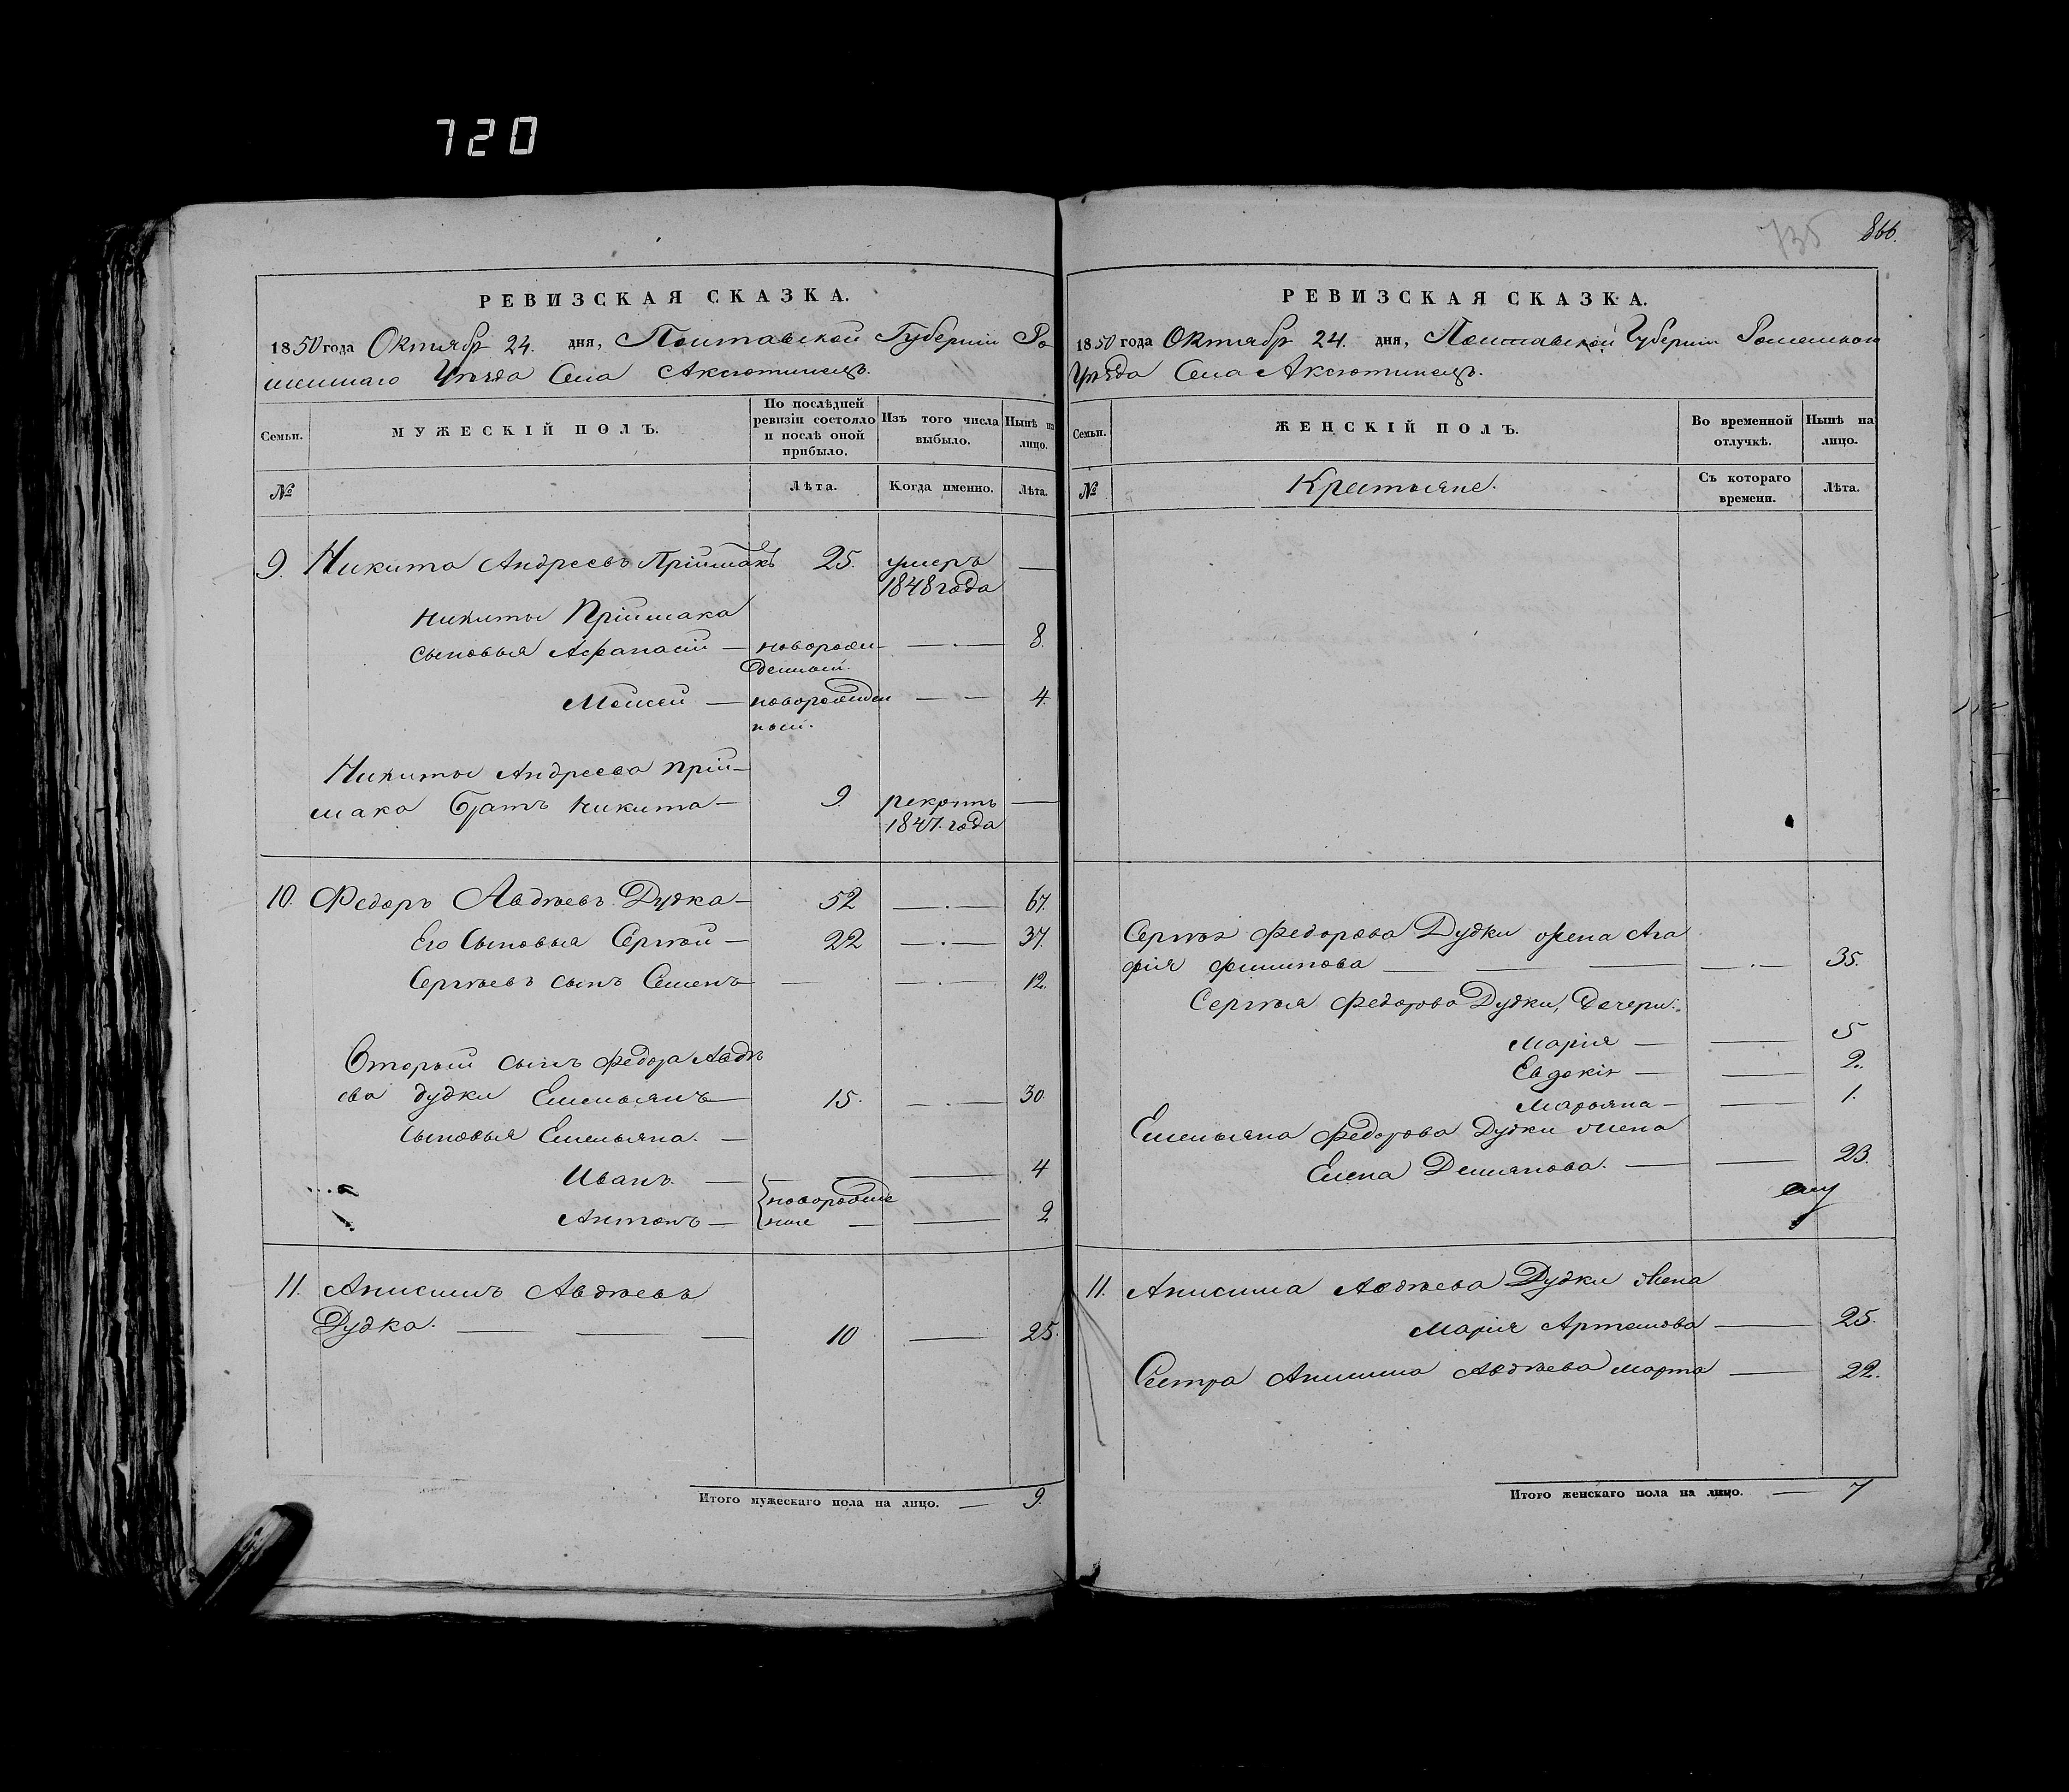 720
735 866.
РЕВИЗСКАЯ СКАЗКА.
1850 года Октябр 24. дня, Полтавской Губерніи Ро
менскаго Уѣзда Села Аксютинецъ.
Семьи.
МУЖЕСКІЙ ПОЛЪ.
По послѣдней ревизіи состояло и послѣ оной прибыло.
Изъ того числа выбыло.
Нынѣ на лицо.
№
Лѣта.
Когда именно.
Лѣта.
9. Никита Андреевъ Пріймакъ 25. умеръ —
1848 года
Никиты Пріймака
сыновья Афанасій — новорож — . — 8.
денный.
Моисей — новорожден — — 4.
ный.
Никиты Андреева Прій—
мака братъ Никита — 9. рекрутъ —
1847. года
10. Федоръ Авдѣевъ Дудка — 52 — . — 67.
Его Сыновья Сергѣй — 22 — . — 37.
Сергѣевъ сынъ Семенъ — — — . — 12.
Вторый сынъ Федора Авдѣ
ева Дудки Емельянъ — 15. — . — 30.
Сыновья Емельяна. —
Иванъ — — 4
новорожде
Антонъ — ные — — 2
11. Анисимъ Авдѣевъ
Дудка. — — — 10 — 25.
Итого мужескаго пола на лицо. — 9.
РЕВИЗСКАЯ СКАЗКА.
1850 года Октябр 24. дня, Полтавской Губерніи Роменскаго
Уѣзда Села Аксютинецъ.
Семьи.
ЖЕНСКІЙ ПОЛЪ.
Во временной отлучкѣ.
Нынѣ на лицо.
№
Крестьяне.
Съ котораго времени.
Лѣта.
Сергѣя Федорова Дудки жена Ага
фія Филипова — — — — . — 35.
Сергѣя Федорова Дудки, Дочери:
Марія — — 5
Евдокія — — 2.
Марьяна — — 1.
Емельяна Федорова Дудки жена
Елена Демянова. — — 23.
11. Анисима Авдѣева Дудки жена
Марія Артемова — 25.
Сестра Анисима Авдѣева Марта — 22.
Итого женскаго пола на лицо. — 7